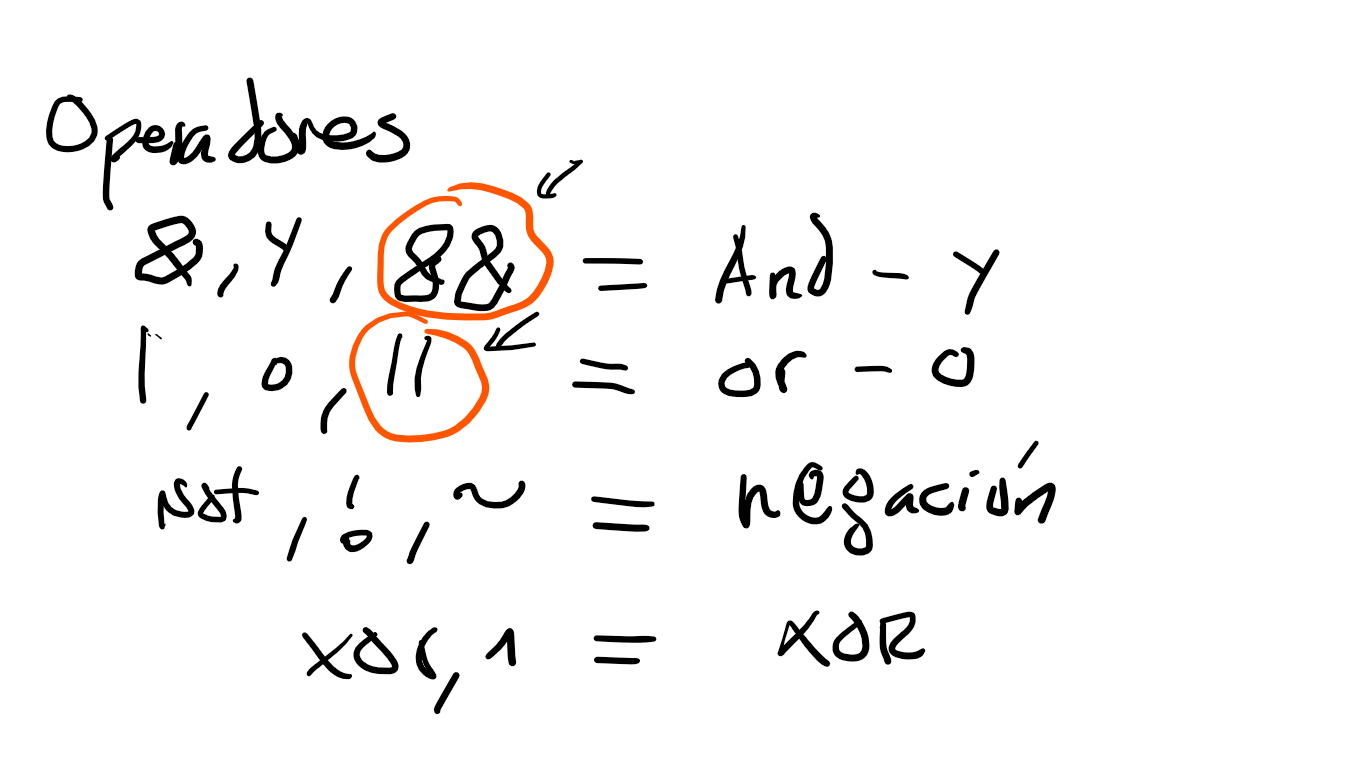 Operadores
&, Y, && = And - Y
|, o, || = or - O
Not, !, ~ = negación
xor, ^ = XOR